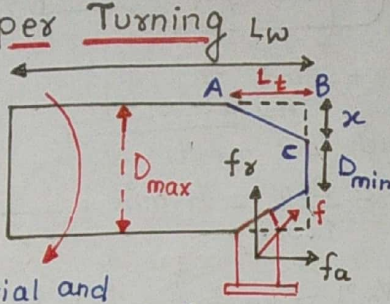 per Turning
Lw
A Lt B
x
C
Dmax
Dmin
fr
f
fa
ial and